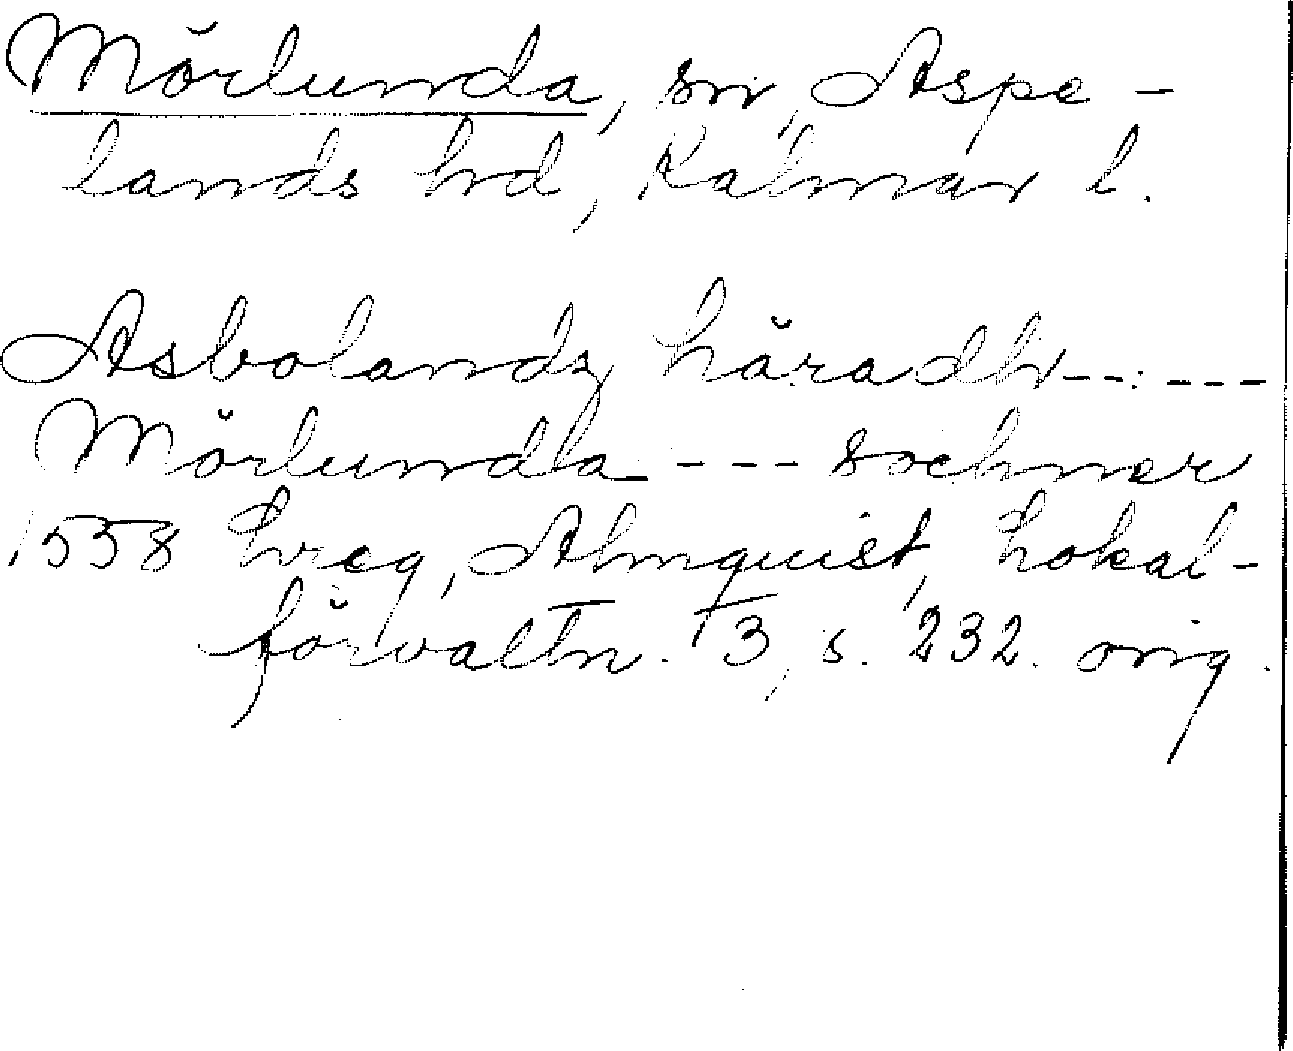 Mörlunda, sn, Aspe-
lands hd, Kalmar l.
Asbolandz häradh -- : ---
Mörlunda --- sochner
1558 Lreg, Almquist, Lokal-
förvaltn. I 3, s. 232. orig.